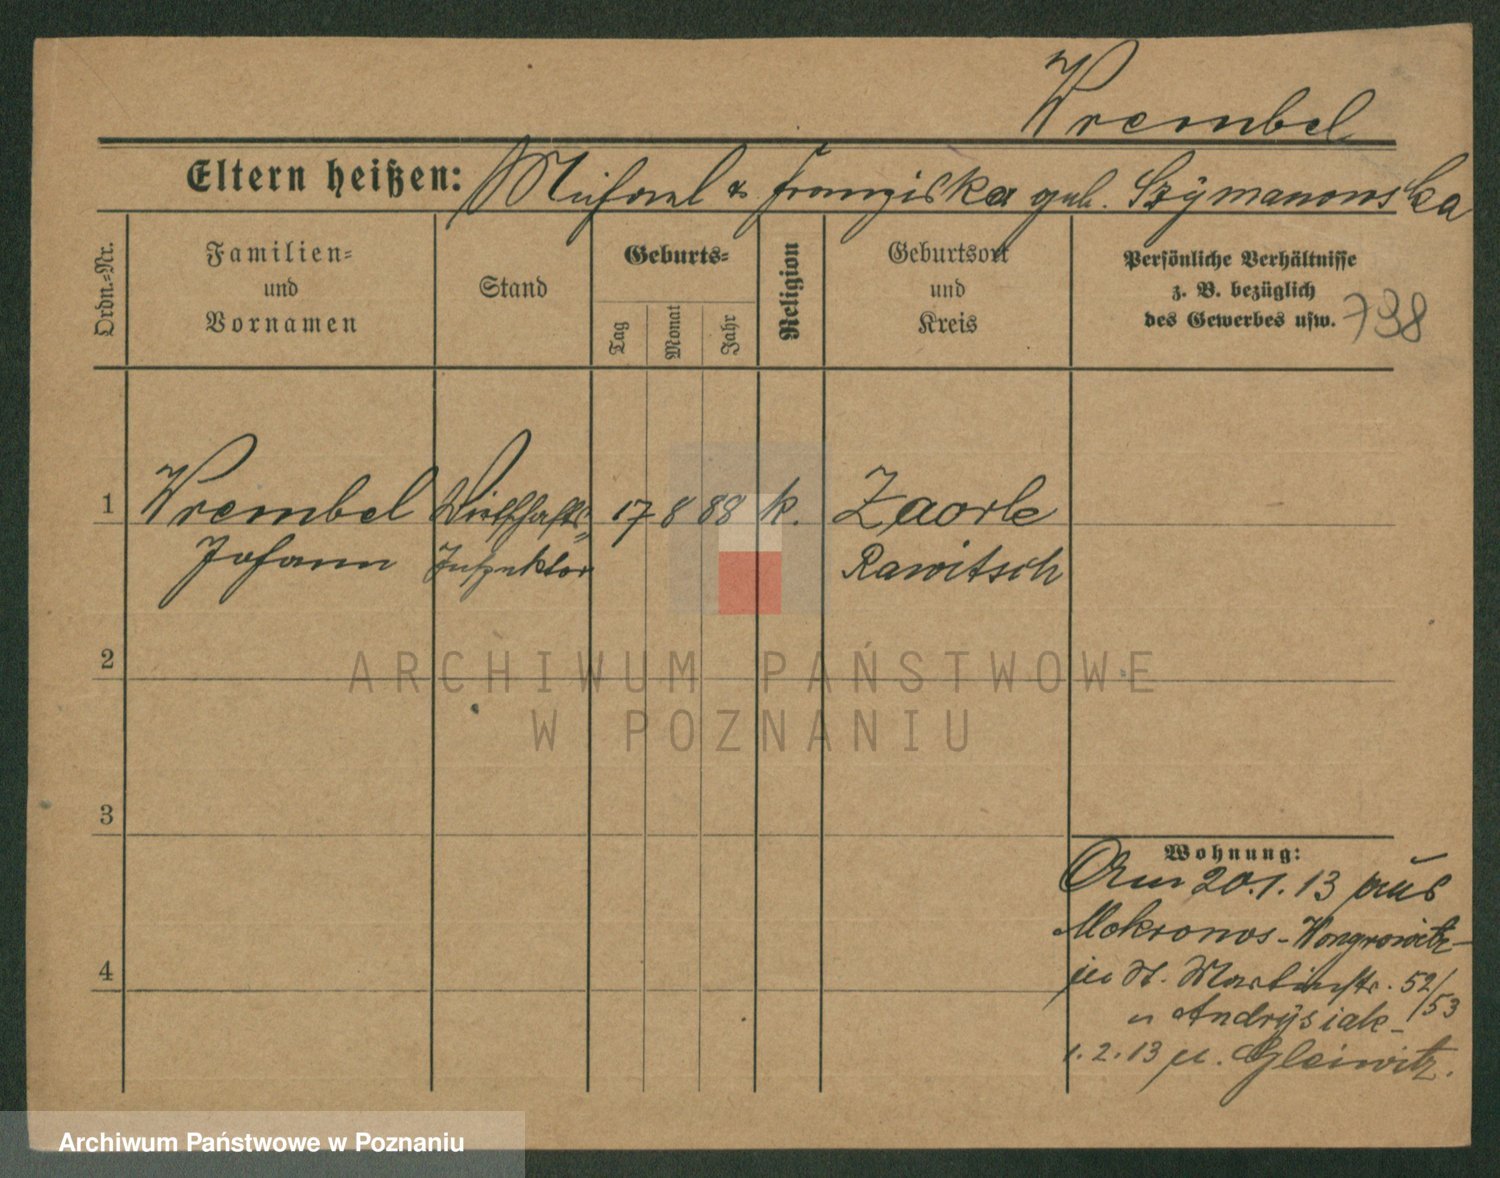 Wrembel
Eltern heißen: Michael & Franziska geb. Szÿmanowska
Ordn.-Nr.
Familien-
und
Vornamen
Stand
Geburts-
Tag
Monat
Jahr
Religion
Geburtsort
und
Kreis
Persönliche Verhältnisse
z. B. bezüglich
des Gewerbes usw.
738
1
Wrembel
Johann
Wirthschafts-
Inspektor
17 8 88
k.
Zaorle
Rawitsch
2
3
4
ARCHIWUM PAŃSTWOWE
W POZNANIU
Wohnung:
Am 20.1.13 aus
Mokronos-Wongrowitz-
St. Martinstr. 52/53
Andrÿsiak-
1.2.13 n. Gleiwitz.
Archiwum Państwowe w Poznaniu